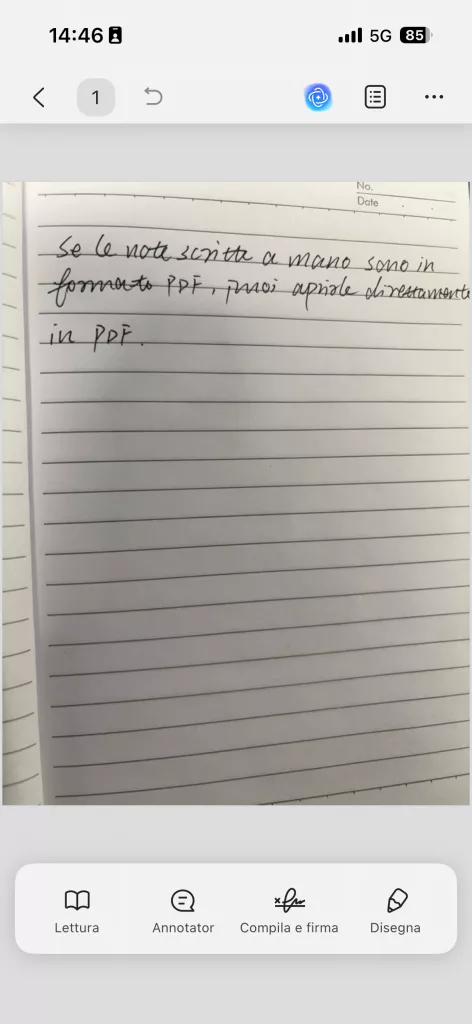 14:46
5G
85
1
No.
Date
Se le note scritte a mano sono in
formato PDF, puoi aprirle direttamente
in PDF.
Lettura
Annotator
Compila e firma
Disegna